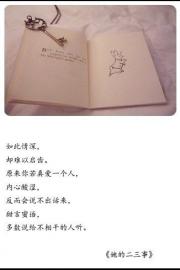 如此情深，
却难以启齿。
原来你若真爱一个人，
内心酸涩，
反而会说不出话来。
甜言蜜语，
多数说给不相干的人听。
《她的二三事》